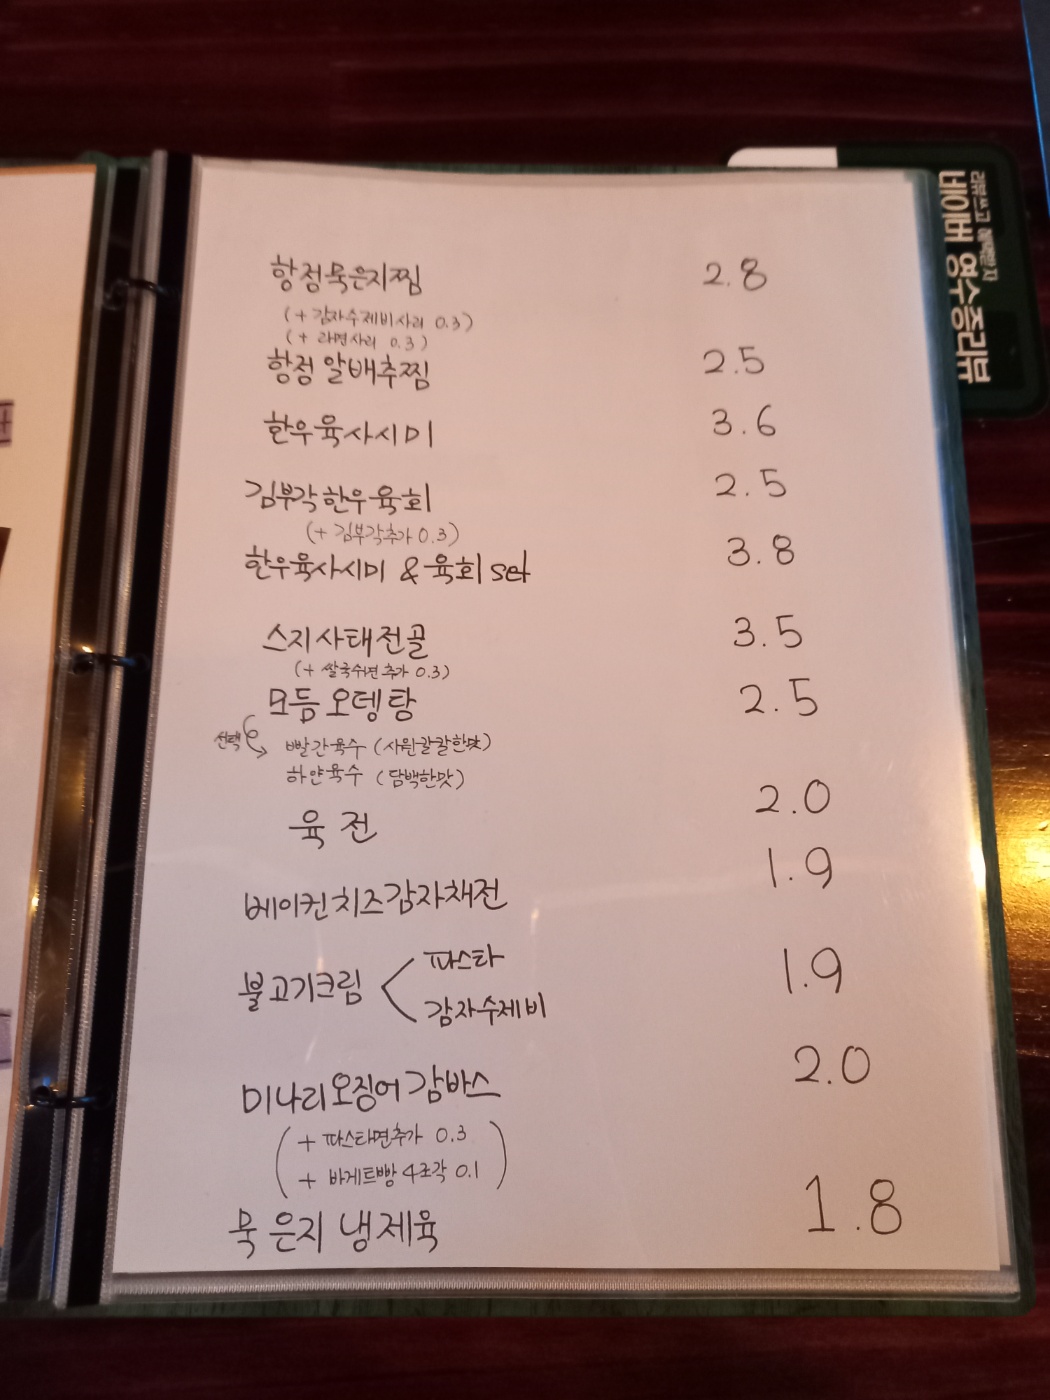 항정묵은지찜 2.8
(+ 감자수제비사리 0.3)
(+ 라면사리 0.3)
항정 알배추찜 2.5
한우육사시미 3.6
김부각한우육회 2.5
(+ 김부각추가 0.3)
한우육사시미 & 육회 set 3.8
스지사태전골 3.5
(+ 쌀국수면 추가 0.3)
모듬오뎅탕 2.5
선택 빨간육수 (시원칼칼한맛)
하얀육수 (담백한맛)
육전 2.0
베이컨치즈감자채전 1.9
불고기크림 파스타 1.9
감자수제비
미나리오징어감바스 2.0
(+ 파스타면추가 0.3
+ 바게트빵 4조각 0.1)
묵은지 냉제육 1.8
리뷰쓰고 혜택받자
네이버 영수증리뷰